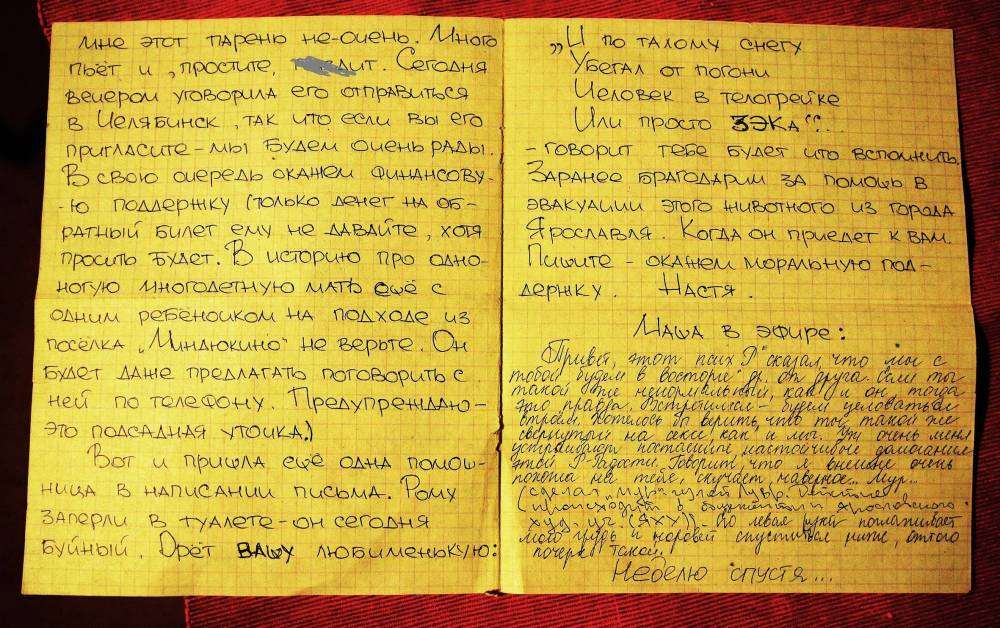 мне этот парень не-очень. Много
пьёт и, простите, дит. Сегодня
вечером уговорила его отправиться
в Челябинск, так что если вы его
пригласите – мы будем очень рады.
В свою очередь окажем финансову-
-ю поддержку (только денег на об-
ратный билет ему не давайте, хотя
просить будет. В историю про одно-
ногую многодетную мать ещё с
одним ребёночком на подходе из
посёлка „Миндюкино" не верьте. Он
будет даже предлагать поговорить с
ней по телефону. Предупреждаю-
это подсадная уточка.)
Вот и пришла ещё одна помощ-
ница в написании письма. Рому
заперли в туалете – он сегодня
буйный. Орёт вашу любименькую:
„И по талому снегу
Убегал от погони
Человек в телогрейке
Или просто ЗЭКа"...
– говорит тебе будет что вспомнить.
Заранее благодарим за помощь в
эвакуации этого животного из города
Ярославля. Когда он приедет к вам.
Пишите – окажем моральную под-
держку. Настя.
Маша в эфире:
Привет, этот псих Р. сказал, что мы с
тобой будем в восторге др. от друга. Если ты
такой же ненормальный, как и он, тогда
это правда. Встретимся – будем целоваться
Хотелось бы верить, что ты такой же
свернутый на сексе как и мы. Уж очень меня
настойчивые домогания
этой Р-Радости. Говорит, что я внешне очень
похожа на тебе, скучает, наверное... Мур...
(сделал
(происходит в общежитии Ярославского
худ. уч. (ЯХУ)). Но левая рука поглаживает
мою грудь и норовит спуститься ниже, оттого
почерк такой.
Неделю спустя...